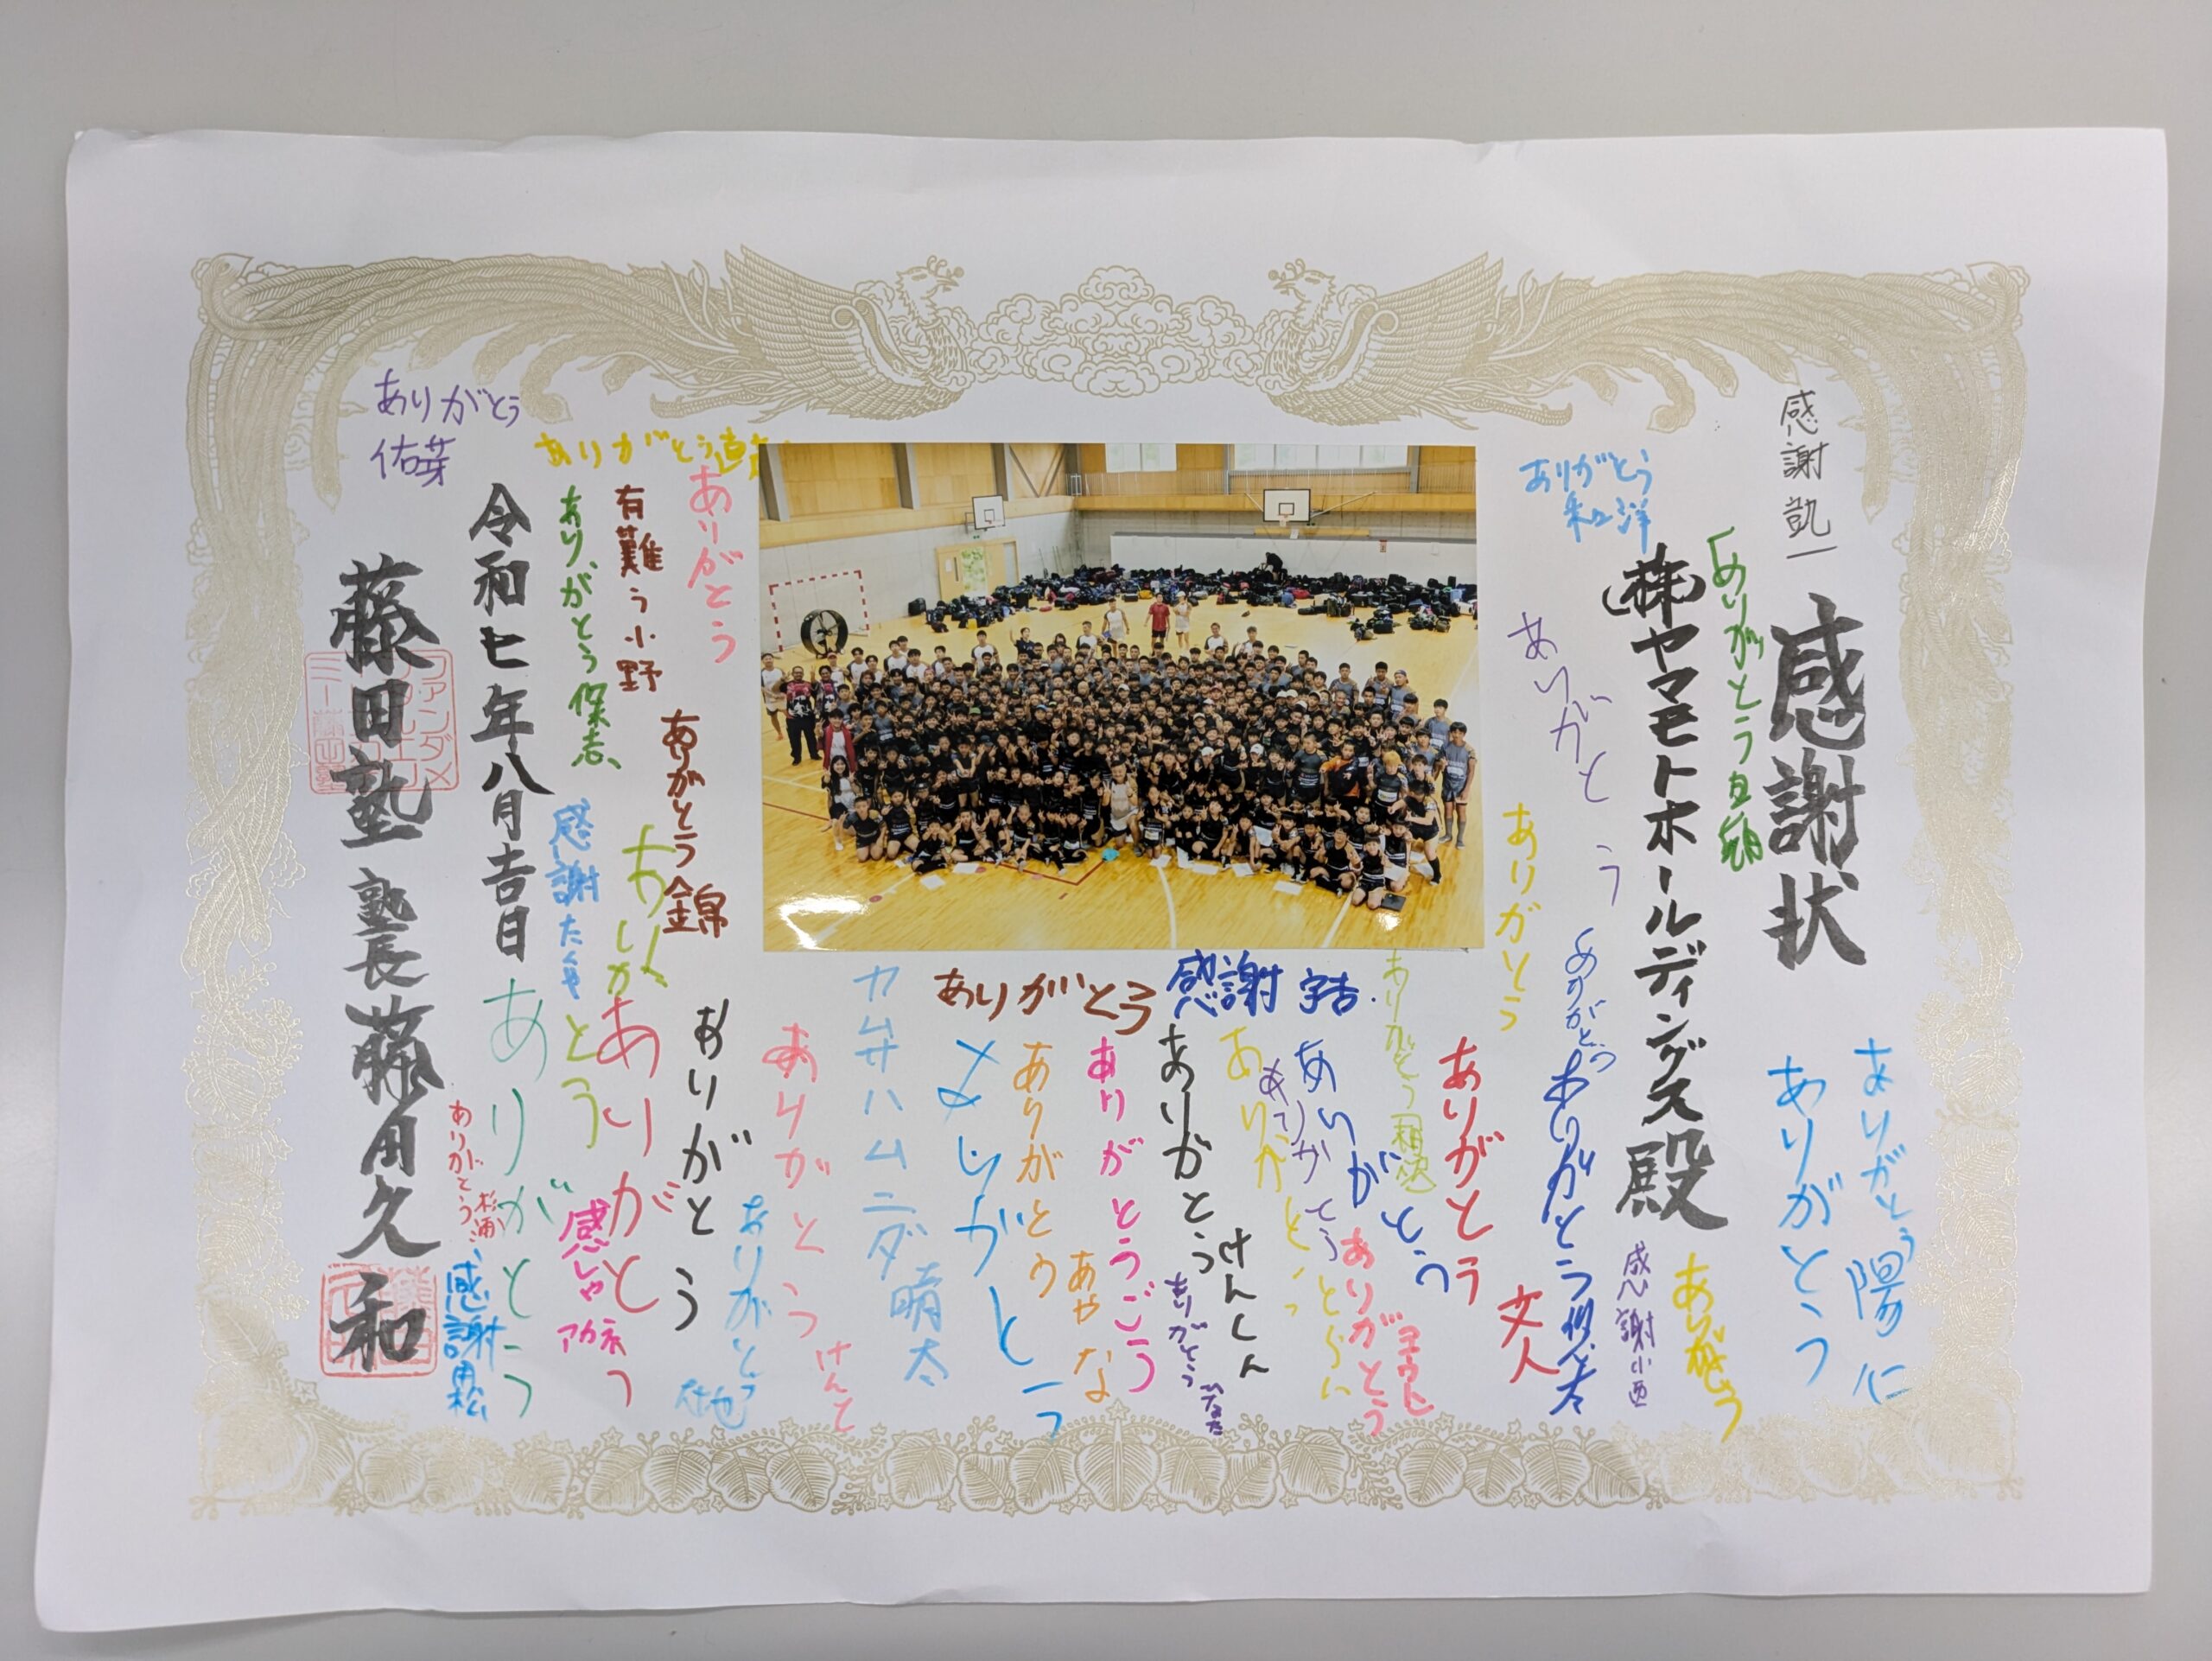 感謝状
感謝 凱一
ありがとう
ありがとう 陽に
ありがとう
(株)ヤマモトホールディングス殿
ありがとう
和洋
ありがとう
感謝 小西
ありがとう
ありがとう
ありがとう
ありがとう
ありがとう
文人
ありがとう
ありがとう
ありがとう
ありがとう
感謝
ありがとう
ありがとう
けんしん
ありがとう
ひなた
ありがとうごう
ありがとう
あやな
ありがとう
カムサハムニダ 晴太
ありがとう
けんて
ありがとう
ありがとう
ありがとう
ありがとう 錦
有難う 小野
ありがとう
ありがとう
感謝 たくや
ありがとう
感しゃ
ありがとう
令和七年八月吉日
ありがとう
佑芽
ありがとう
ありがとう
杉浦
感謝
藤田塾 塾長 藤田久和